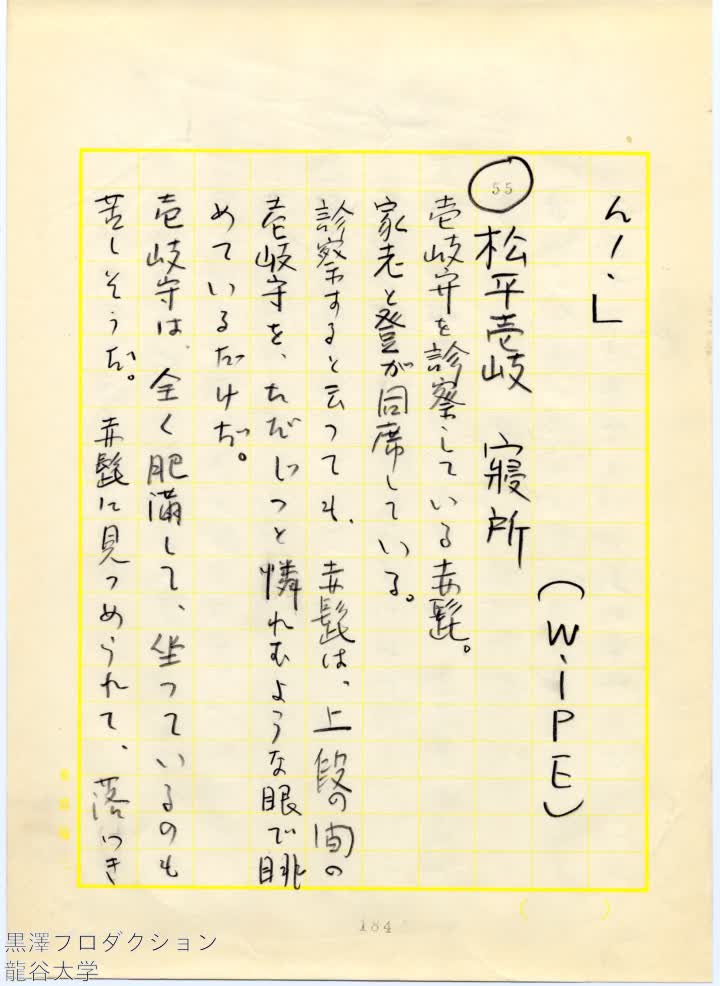 ん！」
（WiPE）
55
松平壱岐　寝所
壱岐守を診察している赤髭。
家老と登が同席している。
診察すると云っても、赤髭は、上段の間の
壱岐守を、ただじっと憐れむような眼で眺
めているだけだ。
壱岐守は、全く肥満して、坐っているのも
苦しそうだ。赤髭に見つめられて、落つき
184
黒澤プロダクション
龍谷大学